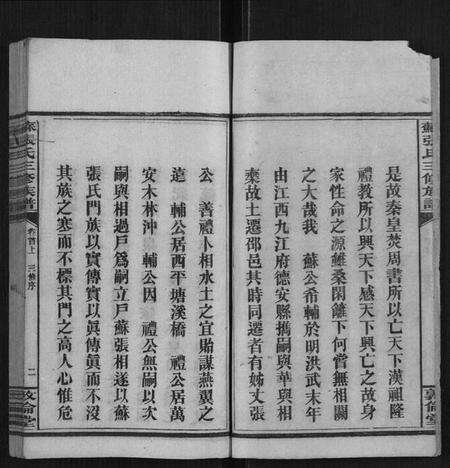 蘇張氏三修族譜
是故秦皇焚周書所以亡天下漢祖隆
禮教所以興天下感天下興亡之故身
家性命之源雖桑閑離下何嘗無相關
之大哉我 蘇公希輔於明洪武末年
由江西九江府德安縣攜嗣與華與相
奕故土遷邵邑其時同遷者有姊丈張
敦倫堂
公 善禮卜相水土之宜貽謀燕翼之
遠 輔公居西平塘溪橋 禮公居萬
安木林沖 輔公因 禮公無嗣以次
嗣與相過戶為嗣立戶蘇張相遂以蘇
張氏門族以實傳實以眞傳眞而不沒
其族之寒而不標其門之高人心惟危
蘇張氏三修族譜
卷首上 三修序
二
敦倫堂